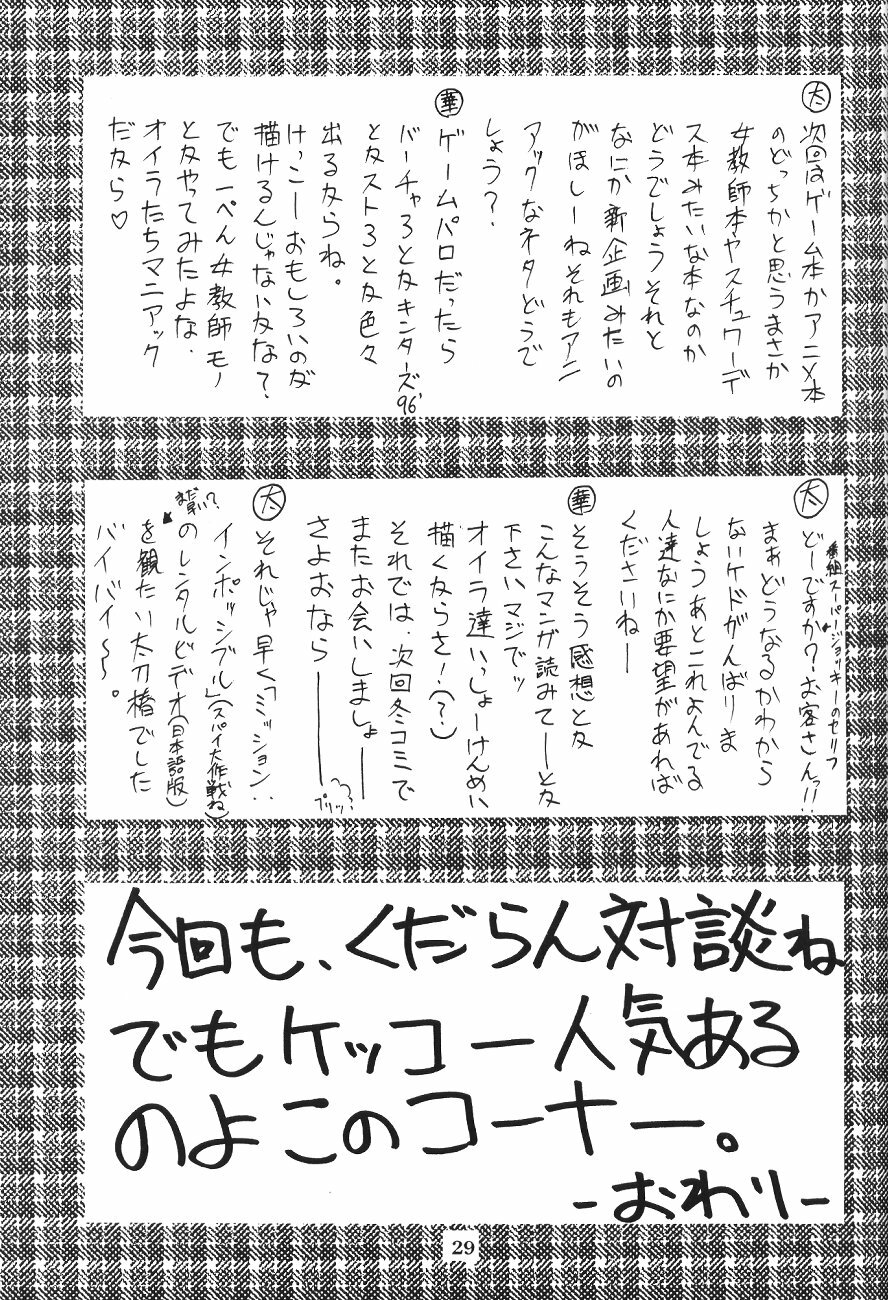 太
次回はゲーム本かアニメ本
のどっちかと思うまさか
女教師本やスチュワーデ
ス本みたいな本なのか
どうでしょうそれと
なにか新企画みたいの
がほしーねそれもアン
アックなネタどうで
しょう?
華
ゲームパロだったら
バーチャ3とかキンターズ96'
とかスト3とか色々
出るからね。
けっこーおもしろいのが
描けるんじゃないかな?
でも一ぺん女教師モノ
とかやってみたよな.
オイラたちマニアック
だから♡
太
番組スーパージョッキーのセリフ
どーですか?お客さんっ!!
まぁどうなるかわから
ないケドがんばりま
しょうあとこれよんでる
人達なにか要望があれば
くださいねー
華
そうそう感想とか
こんなマンガ読みてーとか
下さいマジでッ
オイラ達いっしょーけんめい
描くからさ!(?)
それでは、次回冬コミで
またお会いしましょー
さよおならーーー
プリッ??
太
それじゃ早く「ミッション:
インポッシブル」(スパイ大作戦ね)
のレンタルビデオ(日本語版)
まだ早い?
を観たい太刀椿でした
バイバイ〜。
今回も、くだらん対談ね
でもケッコー人気ある
のよこのコーナー。
-おわり-
29